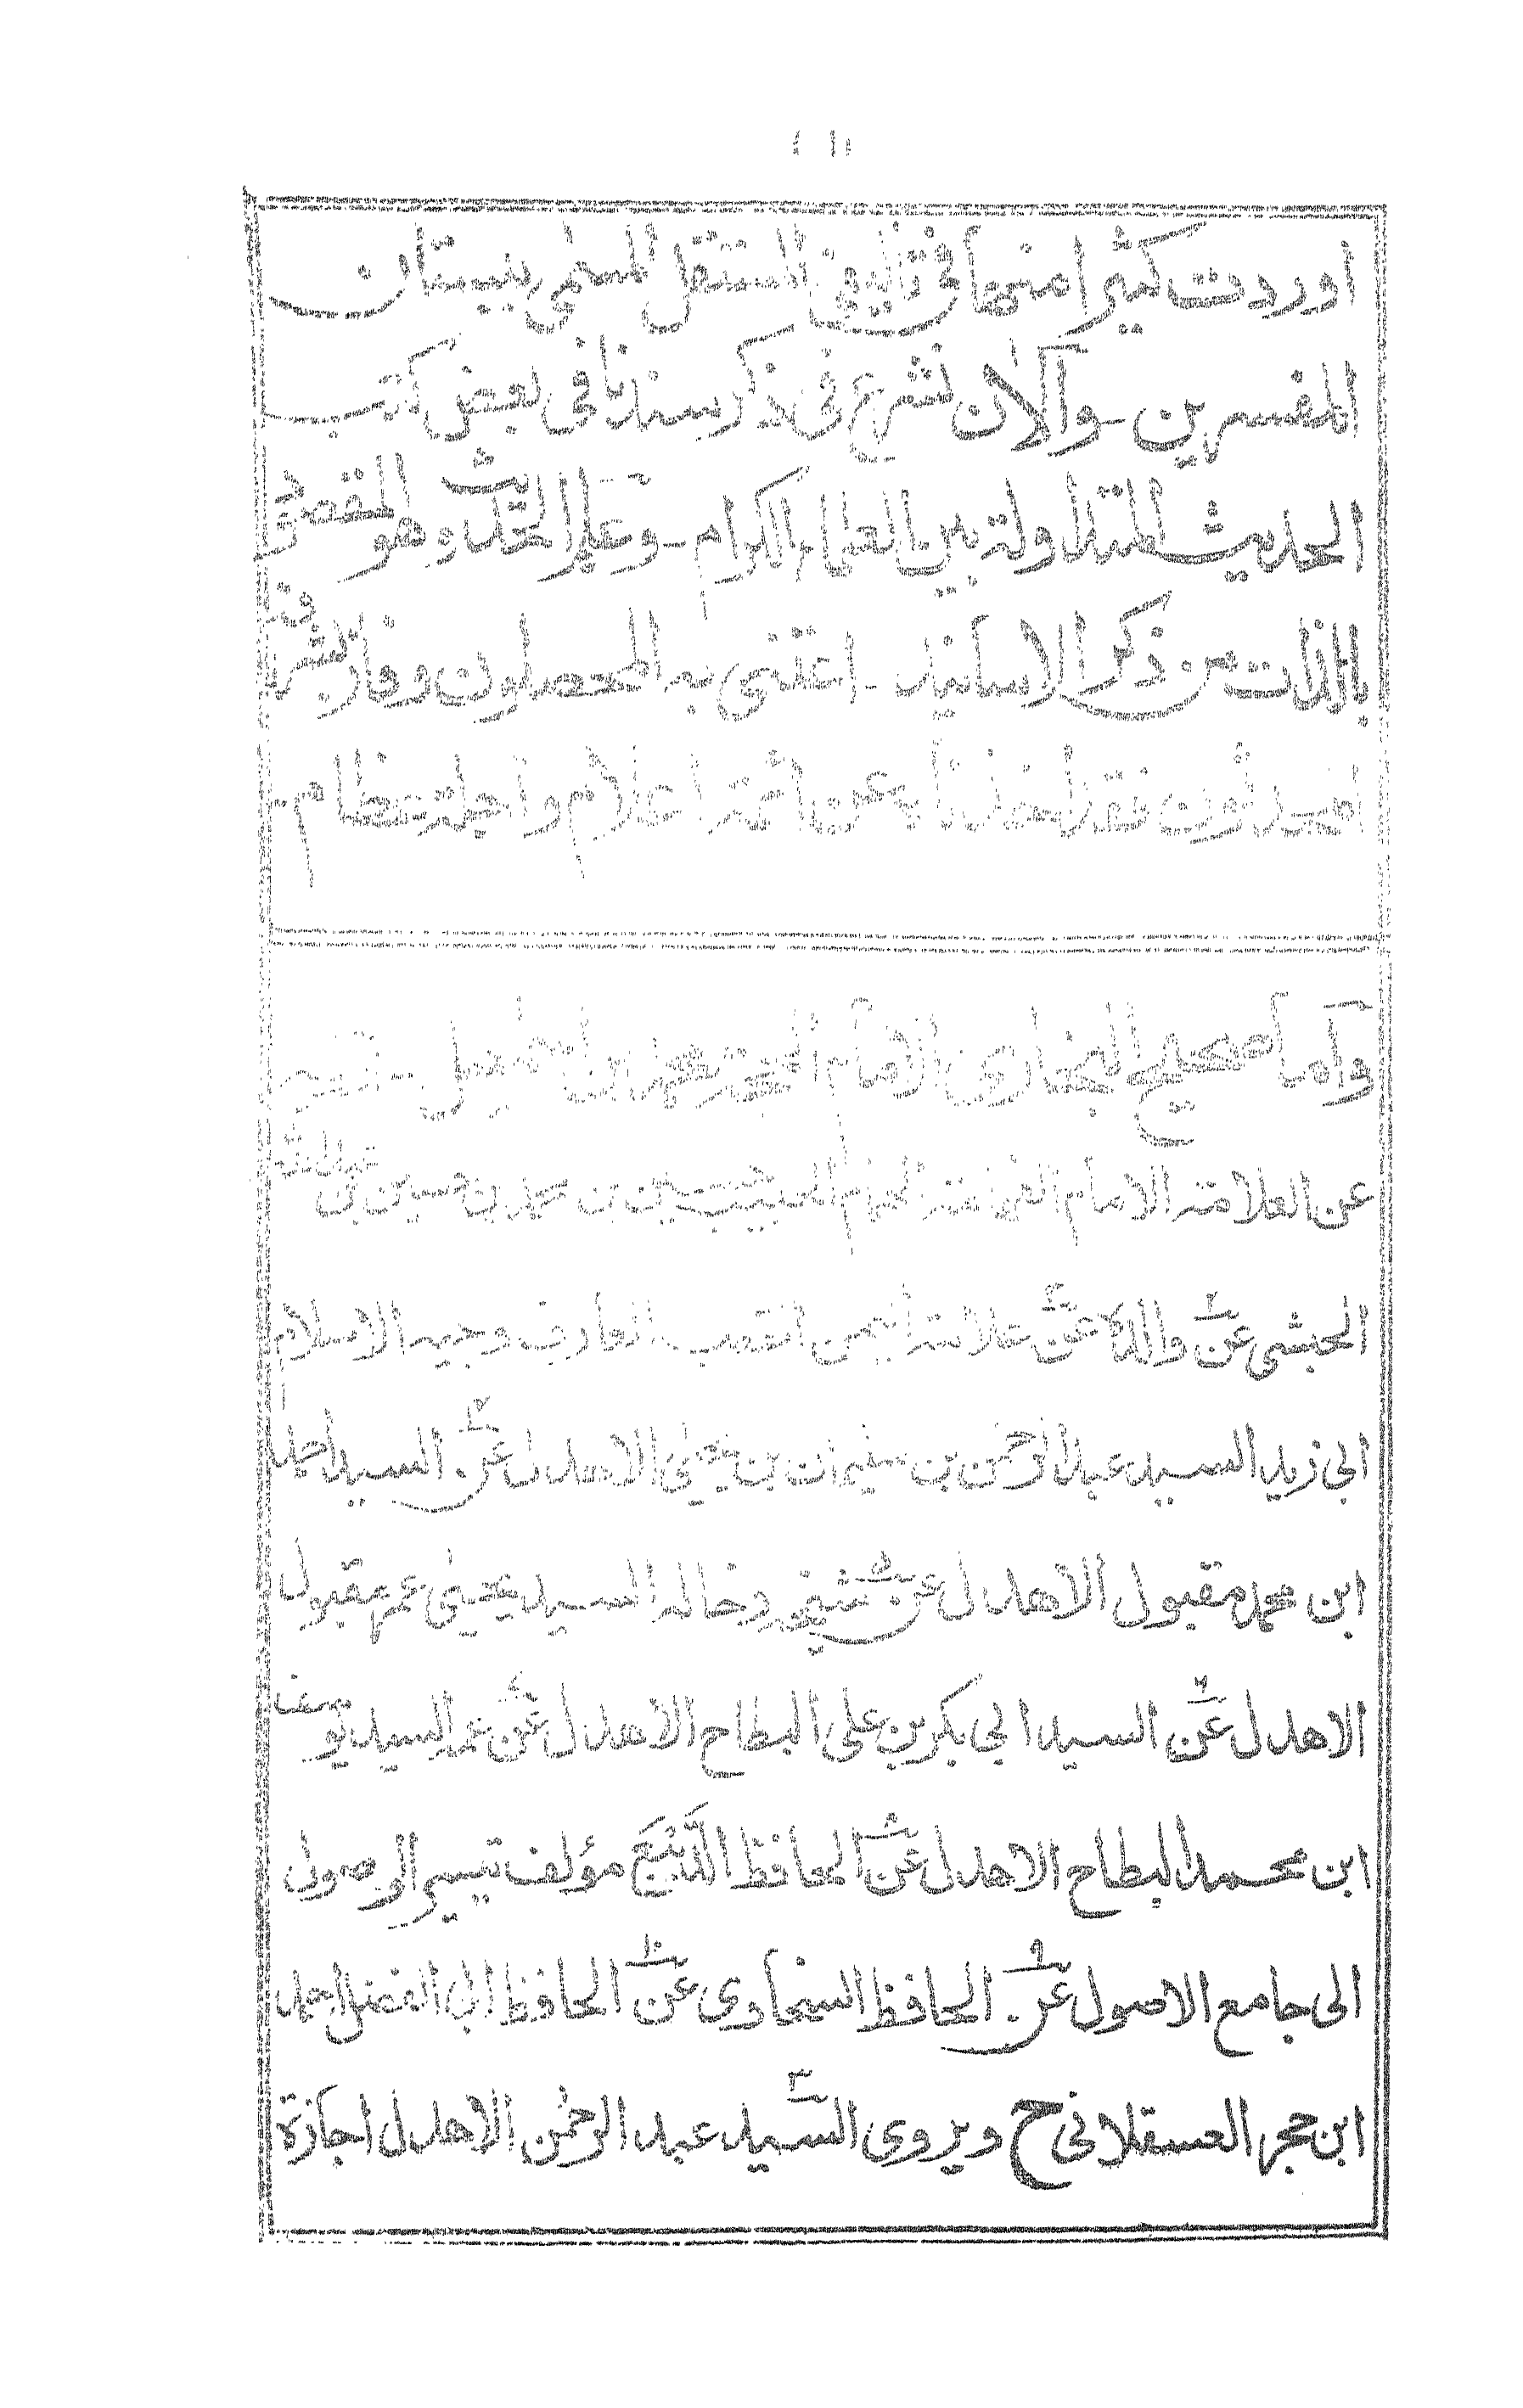 اوردت كثيرا منها فى تاليفى المستقل المسمى ببستان
المفسرين ـ والآن نشرع فى ذكر سندنا فى بعض كتب
الحديث المتداولة بين العلماء الكرام ـ وعلم الحديث وهو المقصود
بالذات من ذكر الاسانيد ـ اعتنى به المحصلون وفاز
فقد اخذنا عن ائمة اعلام واجلة عظام
وأما صحيح البخارى الامام الحجة محمد بن اسمعيل ـ
عن العلامة الامام الفهامة الهمام الحبيب حسين بن محمد بن حسين بن عبد الله
الحبشى عن والده عن علامة اليمن القطب العارف وجيه الاسلام
ابى زيد السيد عبد الرحمن بن سليمان بن يحيى الاهدل عن السيد احمد
ابن محمد مقبول الاهدل عن شيخه وخاله السيد يحيى عمر مقبول
الاهدل عن السيد ابى بكر بن على البطاح الاهدل عن عمه السيد يوسف
ابن محمد البطاح الاهدل عن الحافظ الديبع مؤلف تيسير الوصول
الى جامع الاصول عن الحافظ السخاوى عن الحافظ ابى الفضل احمد
ابن حجر العسقلانى ح ويروى السيد عبد الرحمن الاهدل اجازة